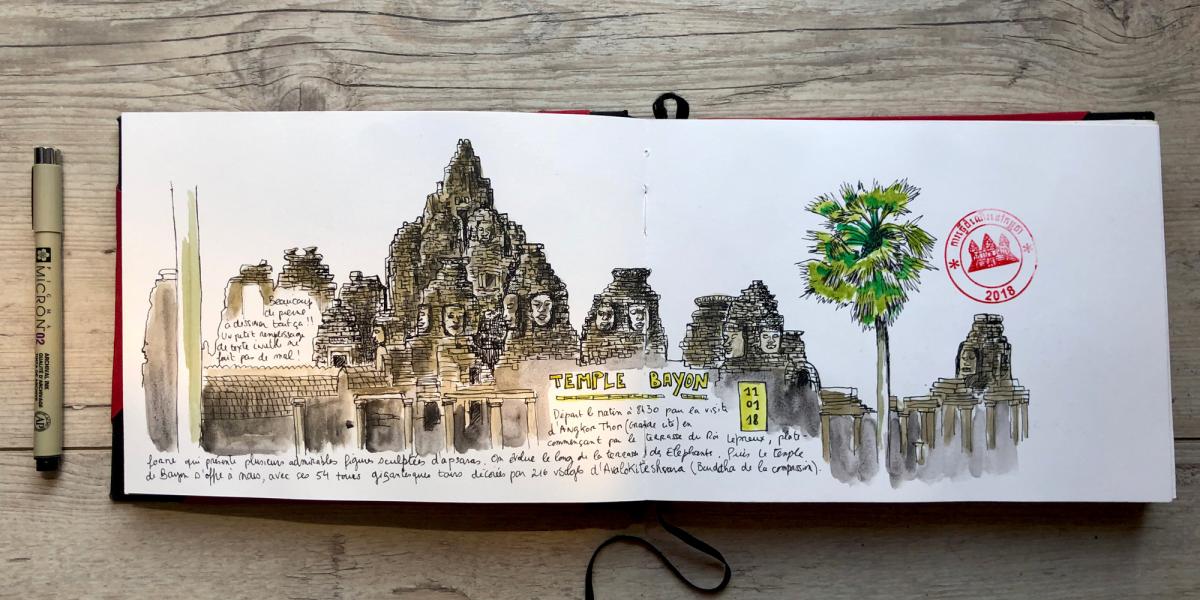 SAKURA
PIGMA
MICRON 02
ARCHIVAL INK
Beaucoup
de pierre
à dessiner tout ça !!
Un petit remplissage
de texte inutile ne
fait pas de mal !
TEMPLE BAYON
11
01
18
Départ le matin à 8h30 pour la visite
d'Angkor Thom (Grande cité) en
commençant par la terrasse du Roi Lépreux, plate-
forme qui présente plusieurs admirables figures sculptées d'apsaras. On évolue le long de la terrasse des Eléphants. Puis le temple
de Bayon s'offre à nous, avec ses 54 tours gigantesques tours décorées par 216 visages d'Avalokiteshvara (Bouddha de la compassion).
2018